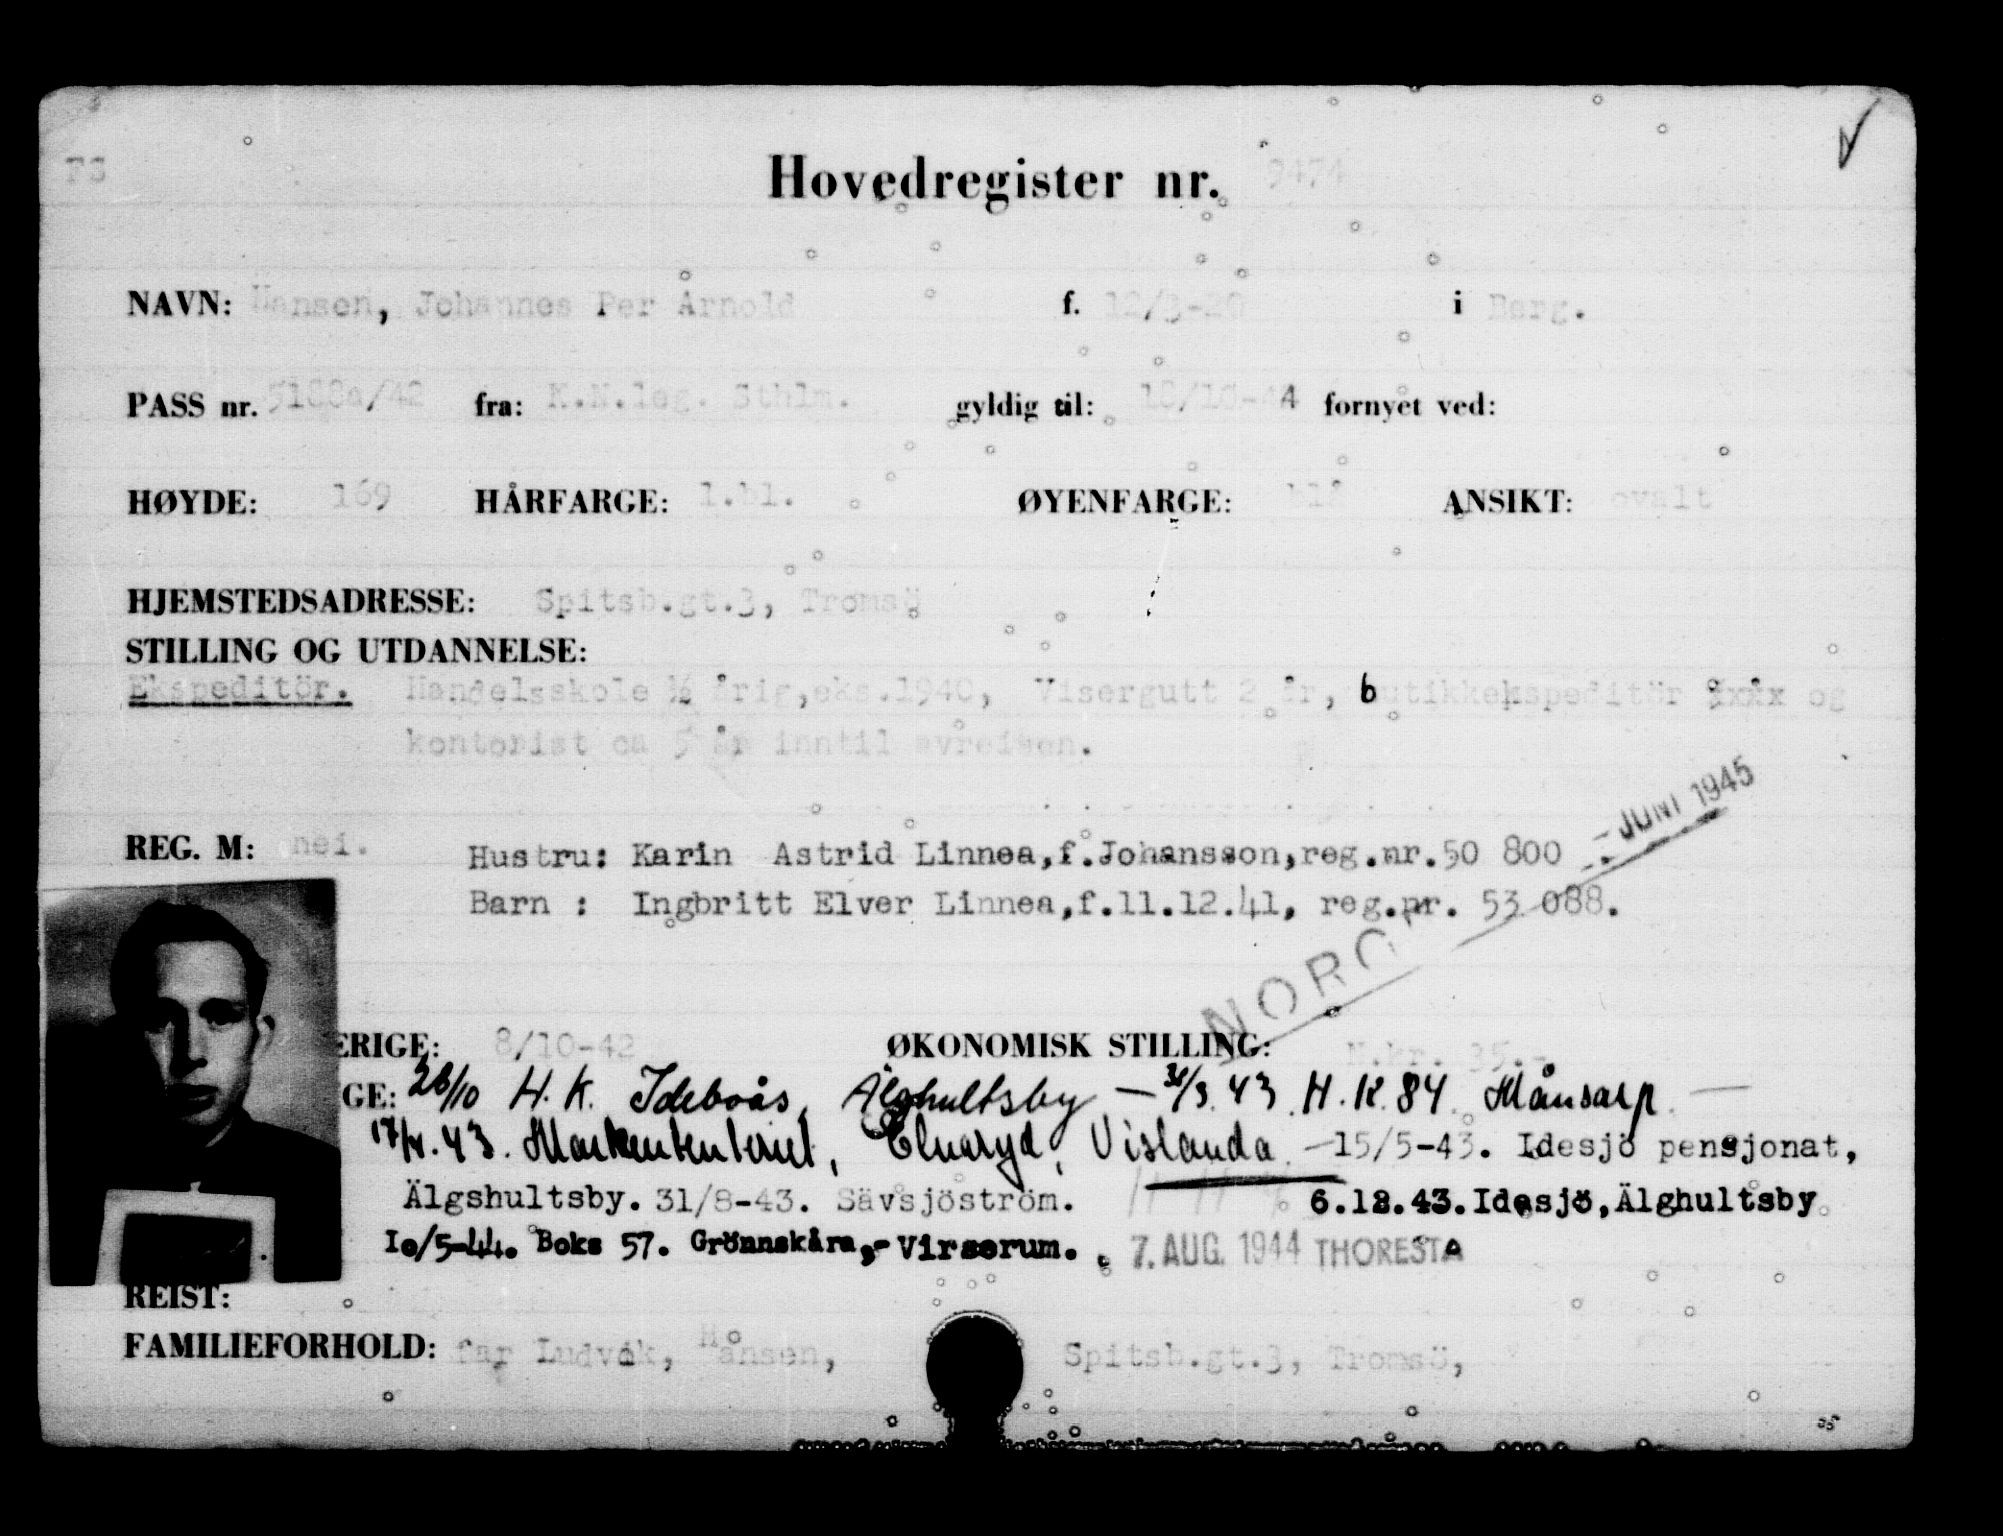 FS
Hovedregister nr. 9474
NAVN: Hansen, Johannes Per Arnold f. 12/3-20 i Berg.
PASS nr. 5188a/42 fra: K.N.leg. Sthlm. gyldig til: 18/10-44 fornyet ved:
HØYDE: 169 HÅRFARGE: l.bl. ØYENFARGE: blå ANSIKT: ovalt
HJEMSTEDSADRESSE: Spitsb.gt.3, Tromsö
STILLING OG UTDANNELSE:
Ekspeditör. Handelsskole ½ årig,eks.1940, Visergutt 2 år, butikkekspeditör og
kontorist ca 5 år inntil avreisen.
- JUNI 1945
REG. M: nei. Hustru: Karin Astrid Linnea,f.Johansson,reg.nr.50 800
Barn : Ingbritt Elver Linnea,f.11.12.41, reg.nr. 53 088.
NORGE
ERIGE: 8/10-42 ØKONOMISK STILLING: N.kr. 35.-
GE: 26/10 H.K. Ideboås, Älghultsby — /3.43 H.K. 84 Månsarp —
17/4.43. Markententeriet, Elnaryd, Vislanda. —15/5-43. Idesjö pensjonat,
Älgshultsby. 31/8-43. Sävsjöström. 6.12.43.Idesjö,Älghultsby
10/5-44. Boks 57. Grönnskåra,- Virserum. 7. AUG. 1944 THORESTA
REIST:
FAMILIEFORHOLD: far Ludvik, Hansen, Spitsb.gt.3, Tromsö,